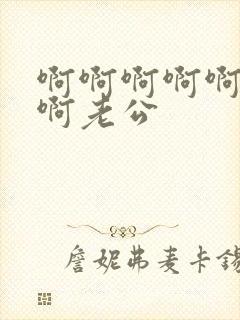 啊啊啊啊啊
啊老公
詹妮弗麦卡锡